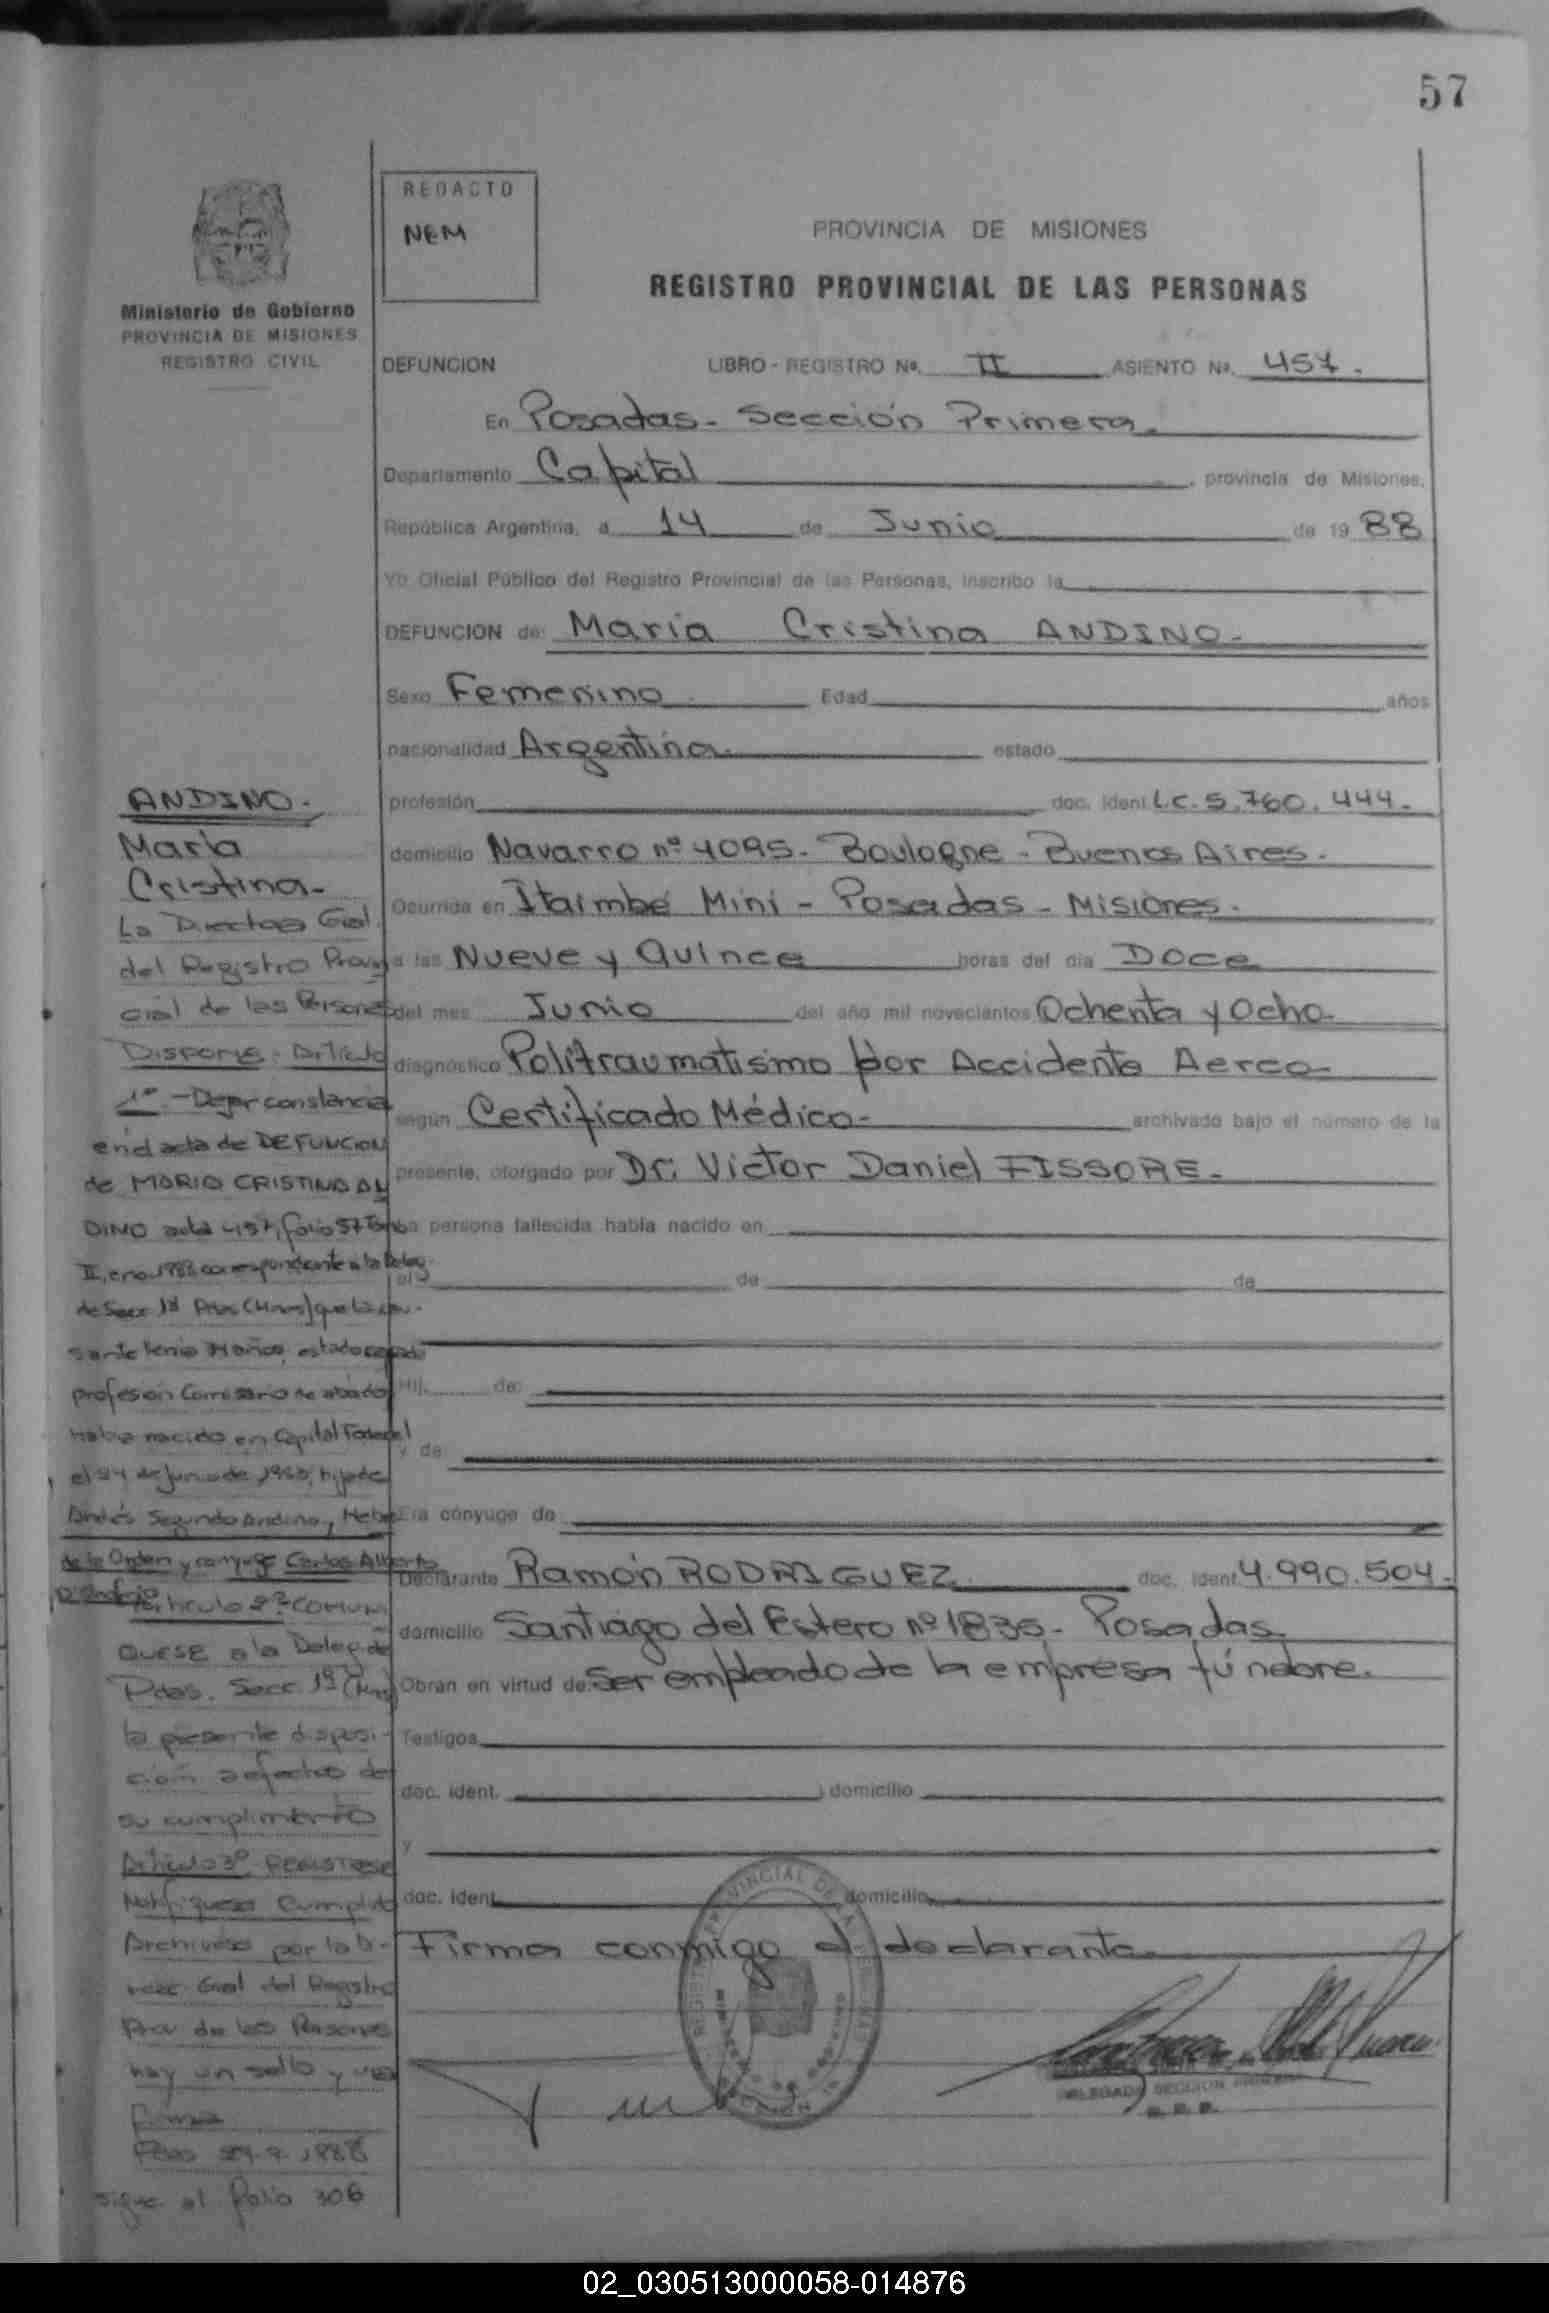 57
REDACTO
NEM
Ministerio de Gobierno
PROVINCIA DE MISIONES
REGISTRO CIVIL
PROVINCIA DE MISIONES
REGISTRO PROVINCIAL DE LAS PERSONAS
DEFUNCION LIBRO - REGISTRO Nº. II ASIENTO Nº. 457.
En Posadas - Sección Primera.
Departamento Capital, provincia de Misiones,
República Argentina, a 14 de Junio de 1988
Yo Oficial Público del Registro Provincial de las Personas, inscribo la
DEFUNCION de: María Cristina ANDINO.-
Sexo Femenino Edad años
nacionalidad Argentina. estado
profesión doc. ident. L.C. 5.760.444.
domicilio Navarro nº 4095. Boulogne - Buenos Aires.
Ocurrida en Itaimbé Mini - Posadas - Misiones.
a las Nueve y Quince horas del día Doce
del mes Junio del año mil novecientos Ochenta y Ocho
diagnóstico Politraumatismo por Accidente Aereo
según Certificado Médico- archivado bajo el número de la
presente, otorgado por Dr. Victor Daniel FISSORE.
La persona fallecida había nacido en
el de de
Hij. de:
y de
Era cónyuge de
Declarante Ramón RODRIGUEZ doc. ident. 4.990.504.
domicilio Santiago del Estero nº 1835. Posadas
Obran en virtud de: Ser empleado de la empresa fúnebre.
Testigos
doc. ident. domicilio
y
doc. ident. domicilio
Firma conmigo el declarante
DELEGADA SECCION PRIMERA
ANDINO.
María
Cristina.
La Directora Gral.
del Registro Provin
cial de las Personas
Dispone: Artículo
1º - Dejar constancia
en el acta de DEFUNCION
de MARIA CRISTINA AN
DINO acta 457, folio 57 Tomo
II, año 1988 correspondiente a la Deleg.
de Secc 1ª Pdas (Mnes) que la cau-
sante tenia años, estado casado
profesión Comisario de abordo
Habia nacido en Capital Federal
el 24 de junio de, hija de
Andrés Segundo Andino, Hebe
de la Orden y conyuge Carlos Alberto
Artículo 2º: COMUNI
QUESE a la Deleg. de
Pdas. Secc. 1ª (Mnes)
la presente disposi-
ción a efectos de
su cumplimiento
Artículo 3º REGISTRESE
Notifíquese Cumplido
Archívese por la Di-
recc. Gral del Registro
Prov de las Personas
hay un sello y una
firma
Pdas 1988
sigue al folio 306
02_030513000058-014876